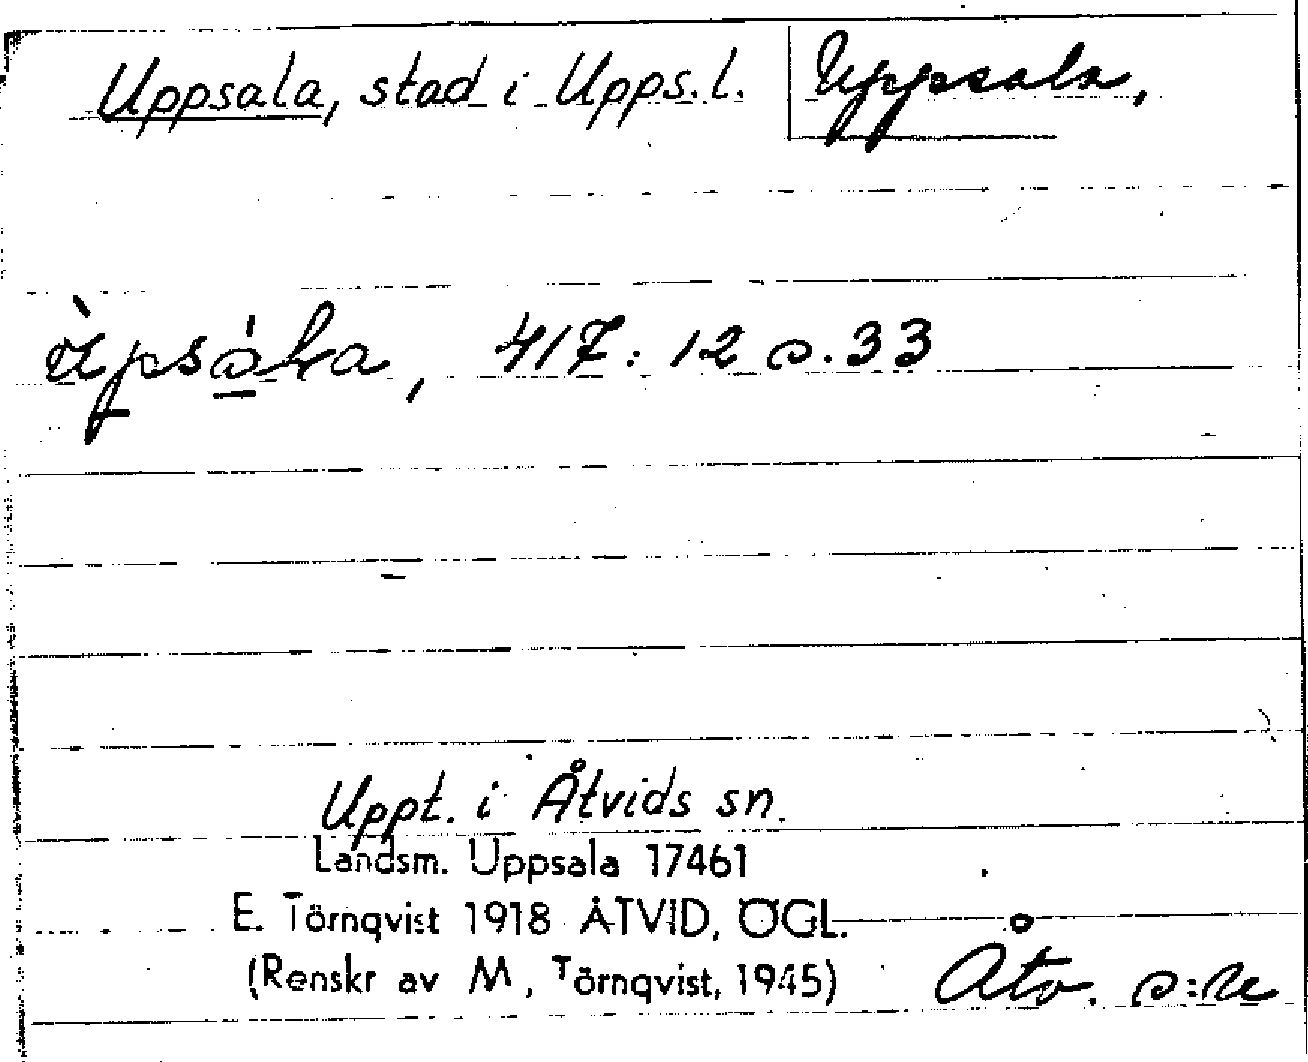 Uppsala, stad i Upps.l. Uppsala,
417:12 s. 33
Uppt. i Åtvids sn.
Landsm. Uppsala 17461
E. Törnqvist 1918 ÅTVID, ÖGL.
(Renskr av M, Törnqvist, 1945) Åtv. s:n